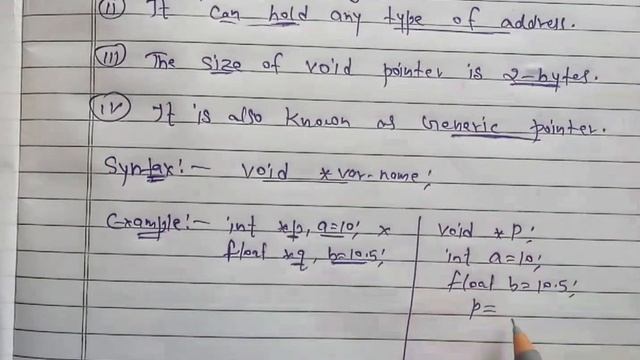 (ii) It can hold any type of address.
(iii) The size of void pointer is 2-bytes.
(iv) It is also known as Generic pointer.
Syntax:- void *var-name;
Example:- int *p, a=10; x
float *q, b=10.5;
void *P;
int a=10;
float b=10.5;
p=